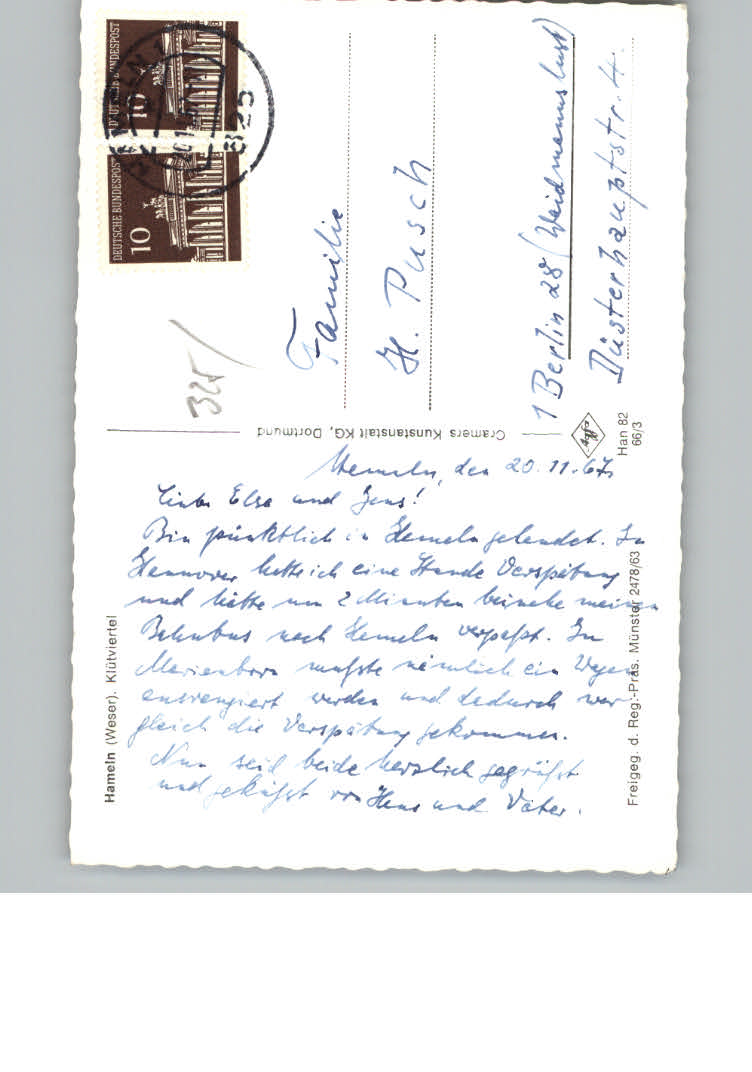 Hameln, den 20.11.67.
Liebe Else und Jens!
Bin pünktlich in Hameln gelandet. In
Hannover hatte ich eine Stunde Verspätung
und hätte um 2 Minuten beinahe meinen
Bahnbus nach Hameln verpaßt. In
Marienborn mußte nämlich ein Wagen
ausrangiert werden und dadurch war
gleich die Verspätung gekommen.
Nun seid beide herzlich gegrüßt
und geküßt von Hans und Vater.
Hameln (Weser). Klütviertel
Freigeg. d. Reg.-Präs. Münster 2478/63
Cramers Kunstanstalt KG, Dortmund
Han 82
66/3
325/
DEUTSCHE BUNDESPOST
10
DEUTSCHE BUNDESPOST
10
325
Familie
H. Pusch
1 Berlin 28 (Waidmannslust)
Düsterhauptstr. 4.